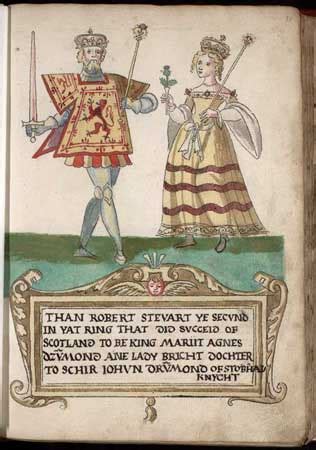 THAN ROBERT STEVART YE SECVND
IN YAT RING THAT DID SVCCEID OF
SCOTLAND TO BE KING MARIIT AGNES
DZVMOND AINE LADY BRICHT DOCHTER
TO SCHIR IOHVN DRVMOND OF STOBHAL
KNYCHT